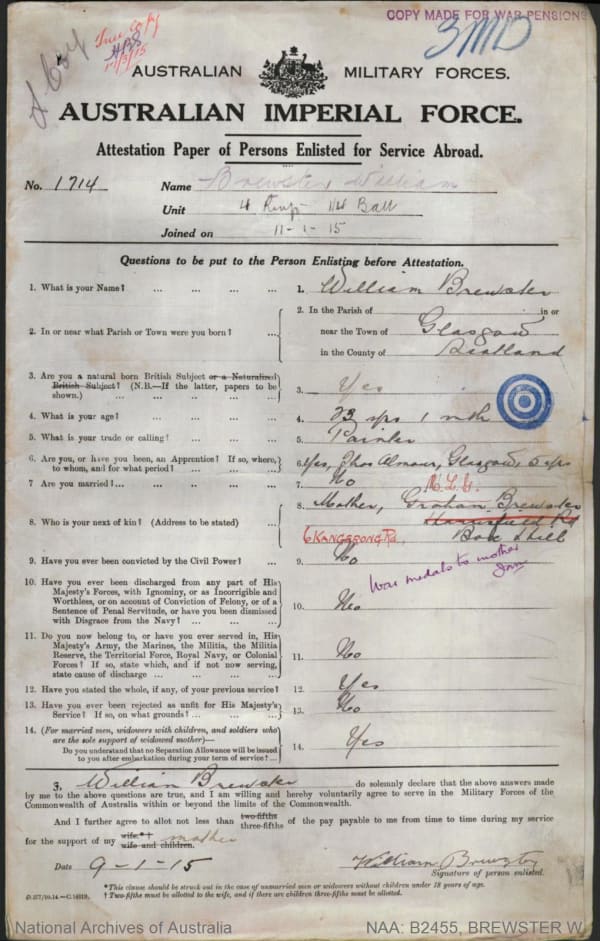 COPY MADE FOR WAR PENSIONS
True Copy
11/3/15
AUSTRALIAN MILITARY FORCES.
AUSTRALIAN IMPERIAL FORCE.
Attestation Paper of Persons Enlisted for Service Abroad.
No. 1714 Name Brewster William
Unit 4 Rinfs 14 Batt
Joined on 11-1-15
Questions to be put to the Person Enlisting before Attestation.
1. What is your Name? ... ... ... ... 1. William Brewster
2. In or near what Parish or Town were you born? ... 2. In the Parish of in or
near the Town of Glasgow
in the County of Scotland
3. Are you a natural born British Subject or a Naturalized
British Subject? (N.B.—If the latter, papers to be
shown.) ... ... ... ... 3. Yes
4. What is your age? ... ... ... ... 4. 23 yrs 1 mth
5. What is your trade or calling? ... ... ... 5. Painter
6. Are you, or have you been, an Apprentice? If so, where,
to whom, and for what period? ... ... ... 6. Yes, Thos Almour, Glasgow, 5 yrs
7. Are you married?... ... ... ... 7. No
8. Who is your next of kin? (Address to be stated) ... 8. Mother, Graham Brewster
6 KANGERONG Rd. Box Hill
9. Have you ever been convicted by the Civil Power? ... 9. No
War medals to mother
10. Have you ever been discharged from any part of His
Majesty's Forces, with Ignominy, or as Incorrigible and
Worthless, or on account of Conviction of Felony, or of a
Sentence of Penal Servitude, or have you been dismissed
with Disgrace from the Navy? ... ... ... 10. No
11. Do you now belong to, or have you ever served in, His
Majesty's Army, the Marines, the Militia, the Militia
Reserve, the Territorial Force, Royal Navy, or Colonial
Forces? If so, state which, and if not now serving,
state cause of discharge ... ... ... ... 11. No
12. Have you stated the whole, if any, of your previous service? 12. Yes
13. Have you ever been rejected as unfit for His Majesty's
Service? If so, on what grounds? ... ... ... 13. No
14. (For married men, widowers with children, and soldiers who
are the sole support of widowed mother)—
Do you understand that no Separation Allowance will be issued
to you after embarkation during your term of service? ... 14. Yes
I, William Brewster do solemnly declare that the above answers made
by me to the above questions are true, and I am willing and hereby voluntarily agree to serve in the Military Forces of the
Commonwealth of Australia within or beyond the limits of the Commonwealth.
And I further agree to allot not less than two-fifths
three-fifths of the pay payable to me from time to time during my service
for the support of my wife.*†
wife and children. mother
Date 9-1-15 William Brewster
Signature of person enlisted.
*This clause should be struck out in the case of unmarried men or widowers without children under 18 years of age.
† Two-fifths must be allotted to the wife, and if there are children three-fifths must be allotted.
National Archives of Australia NAA: B2455, BREWSTER W